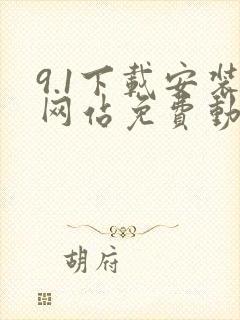 9.1下载安装
网站免费動
胡府